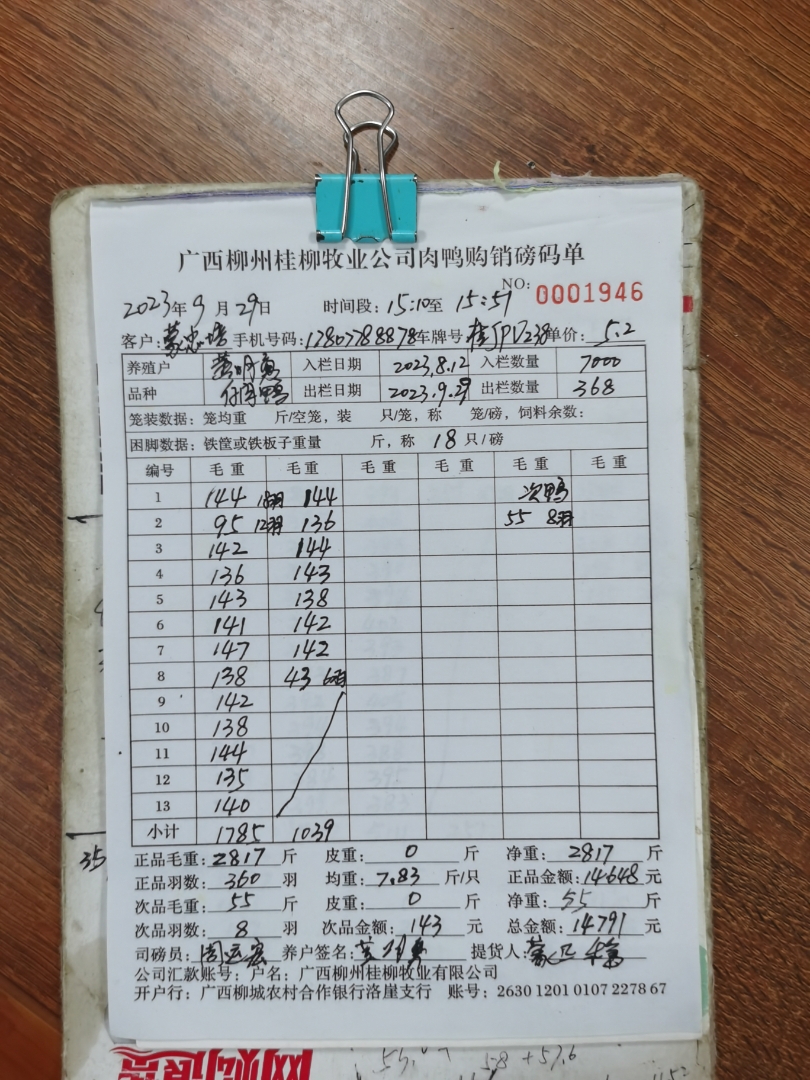 广西柳州桂柳牧业公司肉鸭购销磅码单
NO: 0001946
2023年 9 月 29日 时间段: 15:10至 15:57
客户: 手机号码: 17807788878 车牌号 单价: 5.2
养殖户 入栏日期 2023.8.12 入栏数量 7000
品种 出栏日期 2023.9.29 出栏数量 368
笼装数据: 笼均重 斤/空笼, 装 只/笼, 称 笼/磅, 饲料余数:
困脚数据: 铁筐或铁板子重量 斤, 称 18 只/磅
编号 毛重 毛重 毛重 毛重 毛重 毛重
1 144 18羽 144 次鸭
2 95 12羽 136 55 8羽
3 142 144
4 136 143
5 143 138
6 141 142
7 147 142
8 138 43 6羽
9 142
10 138
11 144
12 135
13 140
小计 1785 1039
正品毛重: 2817 斤 皮重: 0 斤 净重: 2817 斤
正品羽数: 360 羽 均重: 7.83 斤/只 正品金额: 14648 元
次品毛重: 55 斤 皮重: 0 斤 净重: 55 斤
次品羽数: 8 羽 次品金额: 143 元 总金额: 14791 元
司磅员: 养户签名: 提货人:
公司汇款账号: 户名: 广西柳州桂柳牧业有限公司
开户行: 广西柳城农村合作银行洛崖支行 账号: 2630 1201 0107 2278 67
35
58 + 57.6